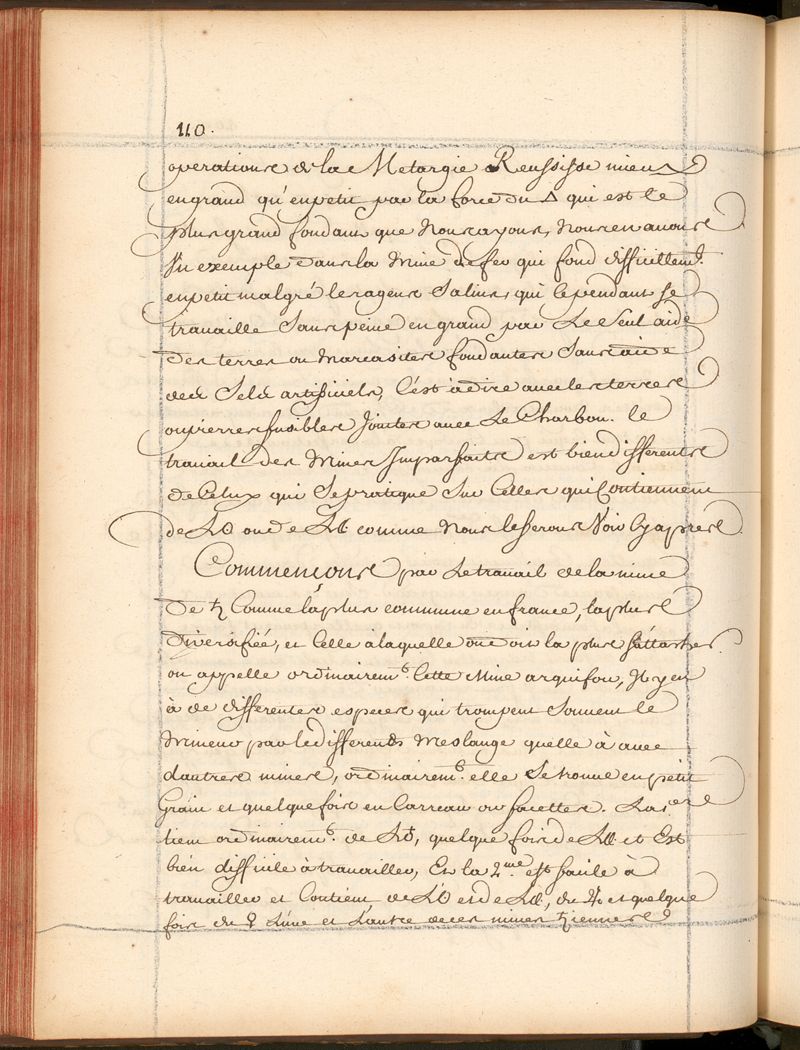 110.
operations de la Metargie Reussisse mieux
en grand qu'en petit par la force du 🜂 qui est le
plus grand fondant que nous ayons, nous en avons
Un exemple dans la Mine de fer qui fond difficillem.t
en petit malgré les agens Salins, qui cependant se
travaille Sans peine en grand par Le Seul aide
des terres ou Marcasites fondantes Sans aide
des Sels artificiels, C'est à dire avec les terres
ou pierres fusibles Jointes avec Le Charbon. le
travail des Mines Imparfaites est bien differentes
de Celux qui Se pratique Sur Celles qui Contiennent
de ou de comme Nous les ferons Voir Cy apres
Commençons par Le travail de la mine
De ♄ Comme la plus commune en france, la plus
diversifiée, et Celle à laquelle on doit la plus s'attacher.
on appelle ordinairem.t Cette Mine arquifou, Il y en
à de differentes especes qui trompent Souvent le
Mineur par le differends Meslange quelle à avec
d'autres mines, ordinairem.t elle Se trouve en petit
Grain et quelque fois en Carreau ou facettes. La 1.ere
tien ordinairem.t de , quelque fois de et Est
bien difficile à travailler, Et la 2.me est facile à
travailler et Contient de et de , du ♃ et quelque
fois du ♀ L'une et L'autre de ces mines ♄iennes